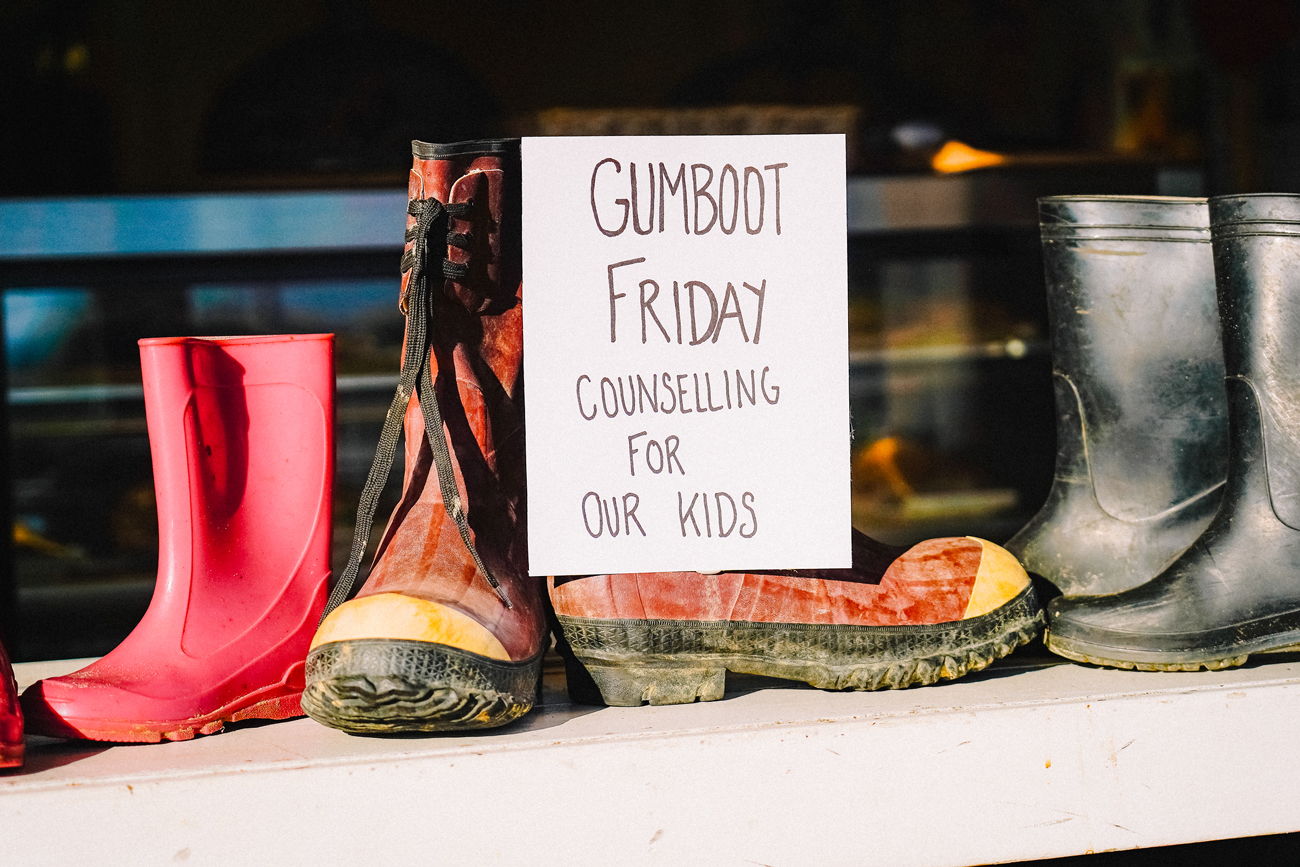 GUMBOOT
FRIDAY
COUNSELLING
FOR
OUR KIDS